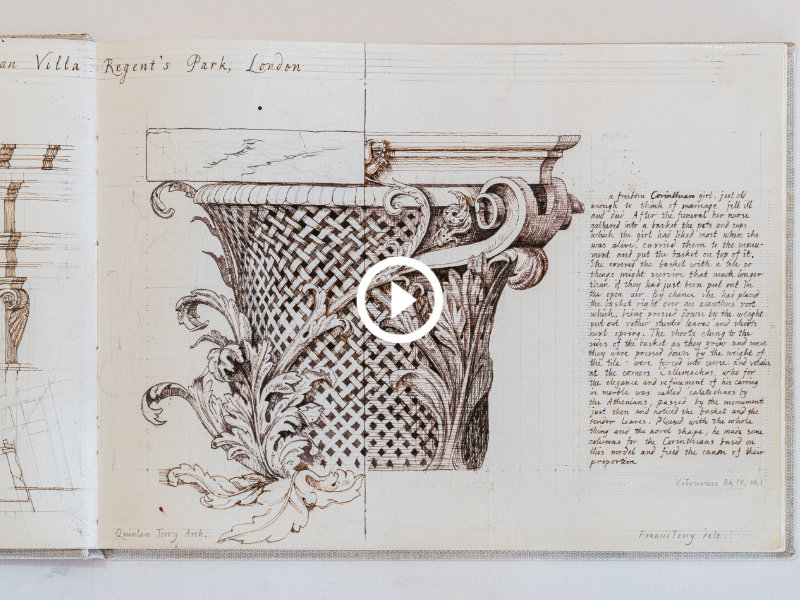 an Villa Regent's Park, London
a freeborn Corinthian girl, just old
enough to think of marriage, fell ill
and died. After the funeral her nurse
gathered into a basket the pots and cups
which the girl had liked most when she
was alive, carried them to the monu-
ment and put the basket on top of it.
She covered the basket with a tile so
things might survive that much longer
than if they had just been put out in
the open air. By chance she had placed
the basket right over an acanthus root
which, being pressed down by the weight
put out rather stunted leaves and shoots
next spring. The shoots clung to the
sides of the basket as they grew and since
they were pressed down by the weight of
the tile - were forced into curves and volutes
at the corners. Callimachus, who for
the elegance and refinement of his carving
in marble was called catatechnos by
the Athenians, passed by the monument
just then and noticed the basket and the
tender leaves. Pleased with the whole
thing and the novel shape, he made some
columns for the Corinthians based on
this model and fixed the canon of their
proportion
Vitruvius Bk IV, ch 1
Quinlan Terry Arch.
Francis Terry delt.